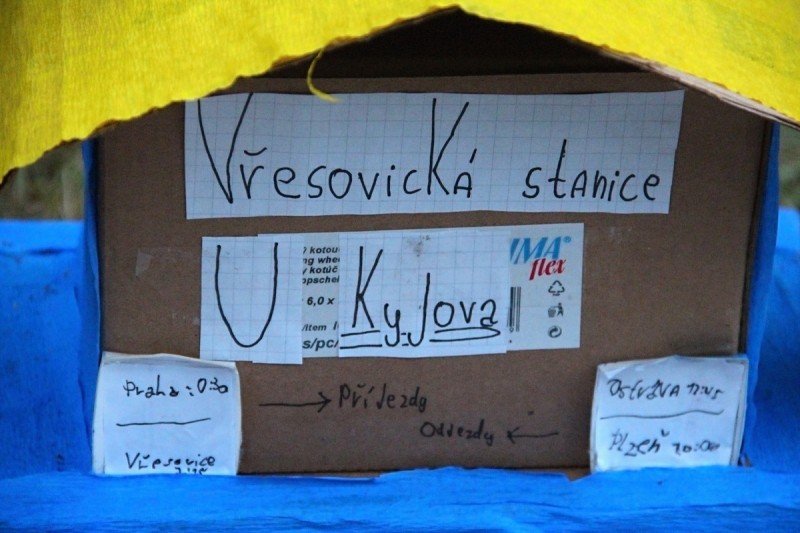 Vřesovická stanice
U Kyjova
ý kotou
ng whee
ý kotúč
opschei
6,0 x
/item
s/pc/
IMA®
flex
Praha: 0:30
Vřesovice
→ Příjezdy
Odjezdy ←
Ostrava 12:45
Plzeň 20:00